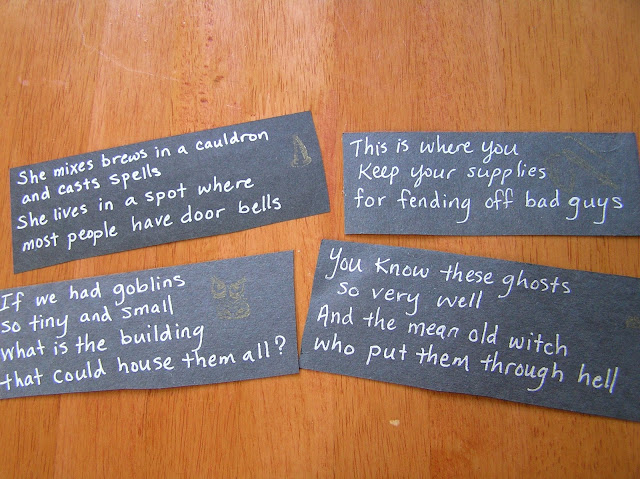 She mixes brews in a cauldron
and casts spells
She lives in a spot where
most people have door bells
This is where you
Keep your supplies
for fending off bad guys
If we had goblins
so tiny and small
What is the building
that could house them all?
You know these ghosts
so very well
And the mean old witch
who put them through hell